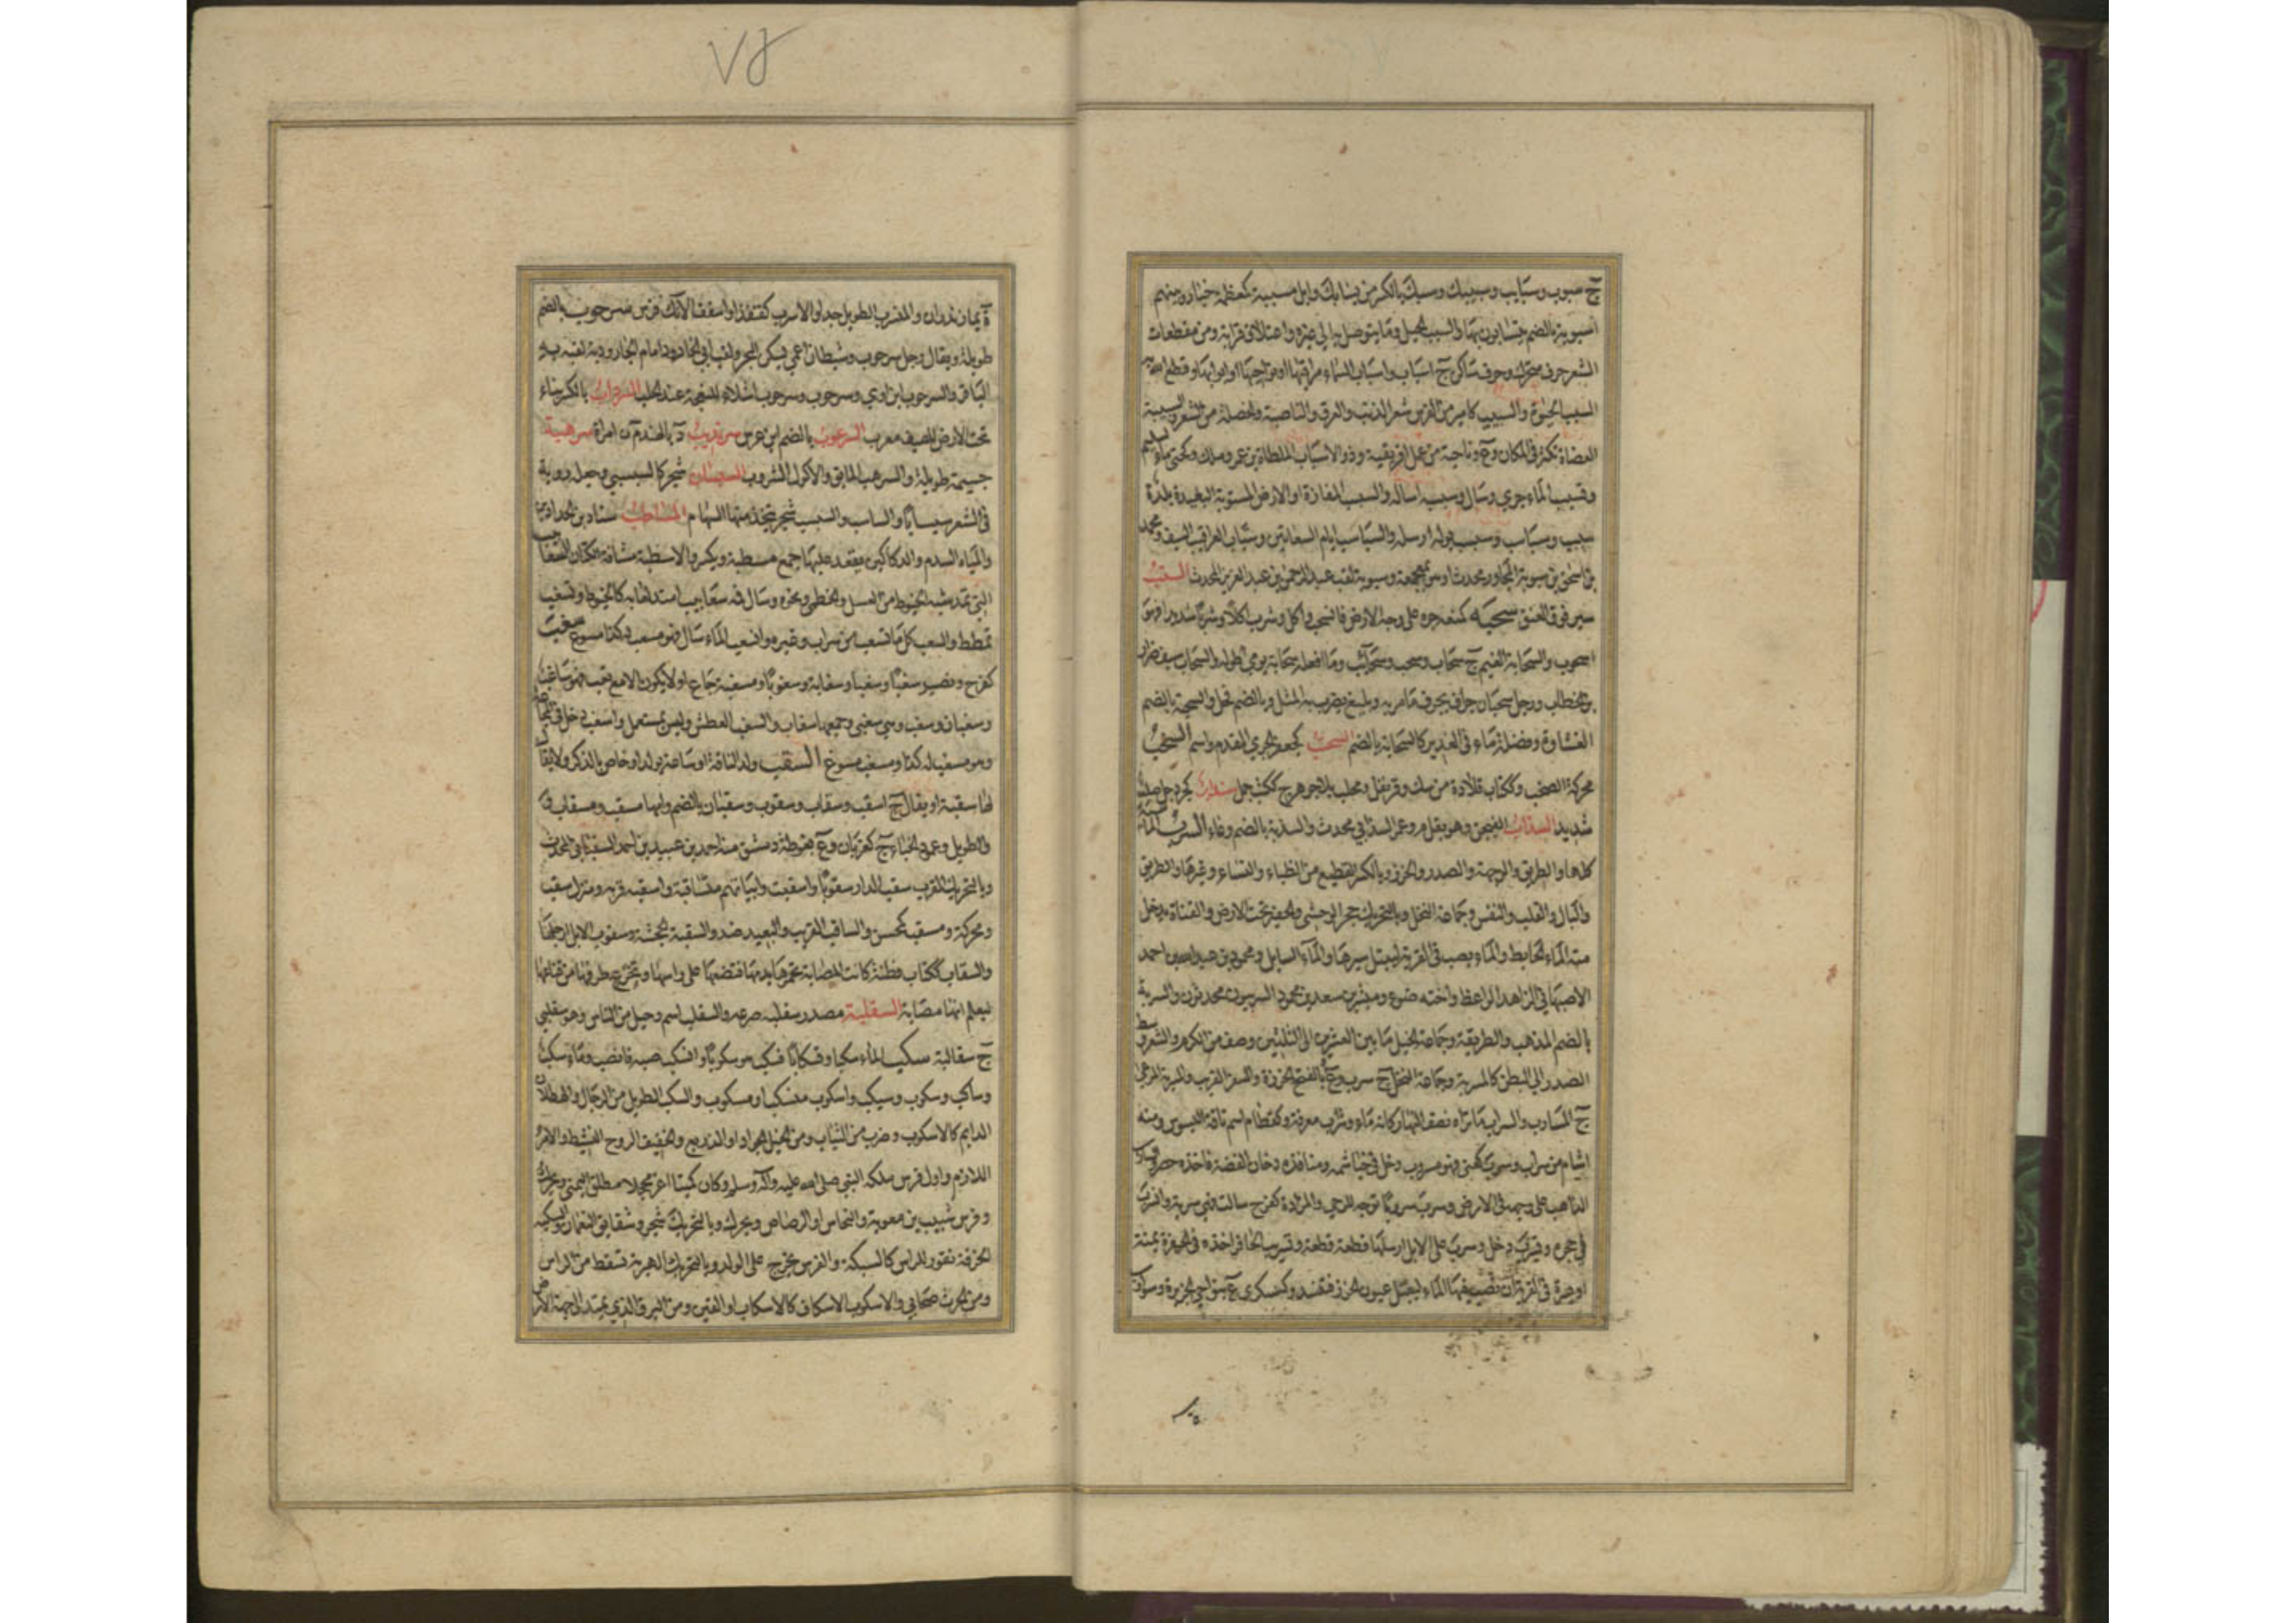 ج سبوب وسبايب وسبيبك وسبك بالكسر من يسابك وابل مسببة كمعظمة خيار وبينهم
اسبوبة بالضم يتسابون بها والسبب الحبل وما يتوصل به الى غيره واعتلاق قرابة ومن مقطعات
الشعر حرف متحرك وحرف ساكن ج اسباب واسباب السماء مراقيها او نواحيها او ابوابها وقطع الله به
السبب الحيوة والسبيب كامير من الفرس شعر الذنب والعرف والناصية والخصلة من الشعر كالسبيبة
العضاة تكثر فى المكان وع وناحية من عمل افريقية وذو الاسباب الملطاط بن عمرو ملك وكحتى ماء لسليم
وتسبسب الماء جرى وسال وسبسبه اساله والسبسب المفازة او الارض المستوية البعيدة بلد
سبسب وسباسب وسبسب بوله ارسله والسباسب ايام السعانين وسباب العراقيب السيف ومحمد
بن اسحق بن سبوبة المجاور محدث او بمعجمة وسبوبة لقب عبد الرحمن بن عبد العزيز المحدث السبت
سير فوق العنق سحبه كمنعه جره على وجه الارض فانسحب واكل وشرب اكلا وشربا شديدا فهو
اسحوب والسحابة الغيم ج سحاب وسحب وسحائب وما افعله سحابة يومى اطوله والسحاب سيف ضرار
بن الخطاب ورجل سحبان جراف يجرف ما مر به وبليغ يضرب به المثل وبالضم فحل والسحبة بالضم
الغشاوة وفضلة ماء فى الغدير كالسحابة بالضم السحتب كجعفر الجرى المقدم واسم السخب
محركة الصخب وككتاب قلادة من سك وقرنفل ومحلب بلا جوهر ج ككتب جمل سنداب كجردحل صلب
شديد السذاب الفيجن وهو بقل م وعمر السذابى محدث والسذبة بالضم وعاء السرب الماشية
كلها والطريق والوجهة والصدر والخرز وبالكسر القطيع من الظباء والنساء وغيرها والطريق
والبال والقلب والنفس وجماعة النخل وبالتحريك جحر الوحشى والحفير تحت الارض والقناة يدخل
منه الماء الحايط والماء يصب فى القربة ليبتل سيرها والماء السايل ومحمود بن عبد الله بن احمد
الاصبهانى الزاهد الواعظ واخته ضوء ومبشر بن سعد بن محمود السربيون محدثون والسربة
بالضم المذهب والطريقة وجماعة الخيل ما بين العشرين الى الثلثين وصف من الكرم والشعر وسط
الصدر الى البطن كالمسربة وجماعة النخل ج سرب وع بالفتح الخرزة والسفر القريب والمسربة المرعى
ج المسارب والسراب ما تراه نصف النهار كانه ماء وسراب معرفة وكقطام اسم ناقة البسوس ومنه
اشام من سراب وسرب كعنى فهو مسروب دخل فى خياشمه ومنافذه دخان الفضة فاخذه حصر والسارب
الذاهب على وجهه فى الارض وسرب سروبا توجه للرعى والمزادة كفرح سالت فهى سربة وانسرب
فى جحره وتسرب دخل وسرب على الابل ارسلها قطعة قطعة وتسريب الحافر اخذه فى الحفرة يمنة
او يسرة فى القربة ان تصب فيها الماء ليبتل عيون الخرز فتنسد وكسكرى ع بنواحى الجزيرة وسوراب
ة بمازندران والمنسرب الطويل جدا والاسرب كقنفذ او اسقف الآنك فرس سرحوب بالضم
طويلة ويقال رجل سرحوب وشيطان اعمى يسكن البحر ولقب ابى الجارود امام الجارودية لقبه به
الباقر والسرحوب ابن آوى وسرحوب وسرحوب اشلاء للنعجة عند الحلب السرداب بالكسر بناء
تحت الارض للصيف معرب السرعوب بالضم ابن عرس سرنديب د بالهند م ن امراة سرهبة
جسيمة طويلة والسرهب المايق والاكول الشروب السيسبان شجر كالسيسبى وجعله روبة
فى الشعر سيسابا والساسب والسيسب شجر يتخذ منها السهام المساطب سنادين الحدادين
والمياه السدم والدكاكين يقعد عليها جمع مسطبة ويكسر والاسطبة مشاقة الكتان السعابيب
التى تمتد شبه الخيوط من العسل والخطمى ونحوه وسال فمه سعابيب امتد لعابه كالخيوط وتسعب
تمطط والسعب كل ما تسعب من شراب وغيره وانسعب الماء سال فهو مسعب له كذا مسوغ سغب
كفرح ونصر سغبا وسغبا وسغابة وسغوبا ومسغبة جاع او لا يكون الا مع تعب فهو ساغب
وسغبان وسغب وهى سغبى وجمعهما سغاب والسغب العطش وليس بمستعمل واسغب دخل فى المجاعة
وهو مسغب له كذا ومسغب مسوغ السقب ولد الناقة او ساعة يولد او خاص بالذكر ولا يقال
لها سقبة او يقال ج اسقب وسقاب وسقوب وسقبان بالضم وامها مسقب ومسقاب و
والطويل وعمود الخباء ج كغربان وع بغوطة دمشق منه احمد بن عبيد بن احمد السقبانى المحدث
وبالتحريك القرب سقبت الدار سقوبا واسقبت وابياتهم متساقبة واسقبه قربه ومنزل سقب
ومحركة ومسقب كمحسن والساقب القريب والبعيد ضد والسقبة الجحشة وسقوب الابل ارجلها
والسقاب ككتاب قطنة كانت المصابة تحمرها بدمها فتضعها على راسها وتخرج طرفها من قناعها
ليعلم انها مصابة السقلبة مصدر سقلبه صرعه والسقلب اسم وجيل من الناس وهو سقلبى
ج سقالبة سكب الماء سكبا وتسكابا فسكب هو سكوبا وانسكب صبه فانصب وماء سكب
وساكب وسكوب وسيكب واسكوب منسكب او مسكوب والسكب الطويل من الرجال والهطلان
الدايم كالاسكوب وضرب من الثياب ومن الخيل الجواد او الذريع والخفيف الروح النشيط والامر
اللازم واول فرس ملكه النبى صلى الله عليه وآله وسلم وكان كميتا اغر محجلا مطلق اليمنى ويحرك
وفرس شبيب بن معوية والنحاس او الرصاص ويحرك وبالتحريك شجر وشقايق النعمان والسكبة
الخرقة تقور للراس كالسبكة والغرس يخرج على الولد وبالتحريك الهبرية تسقط من الراس
ومن الحرث صحابى والاسكوب الاسكاف كالاسكاب او القين ومن البرق الذى يمتد الى جهة الارض